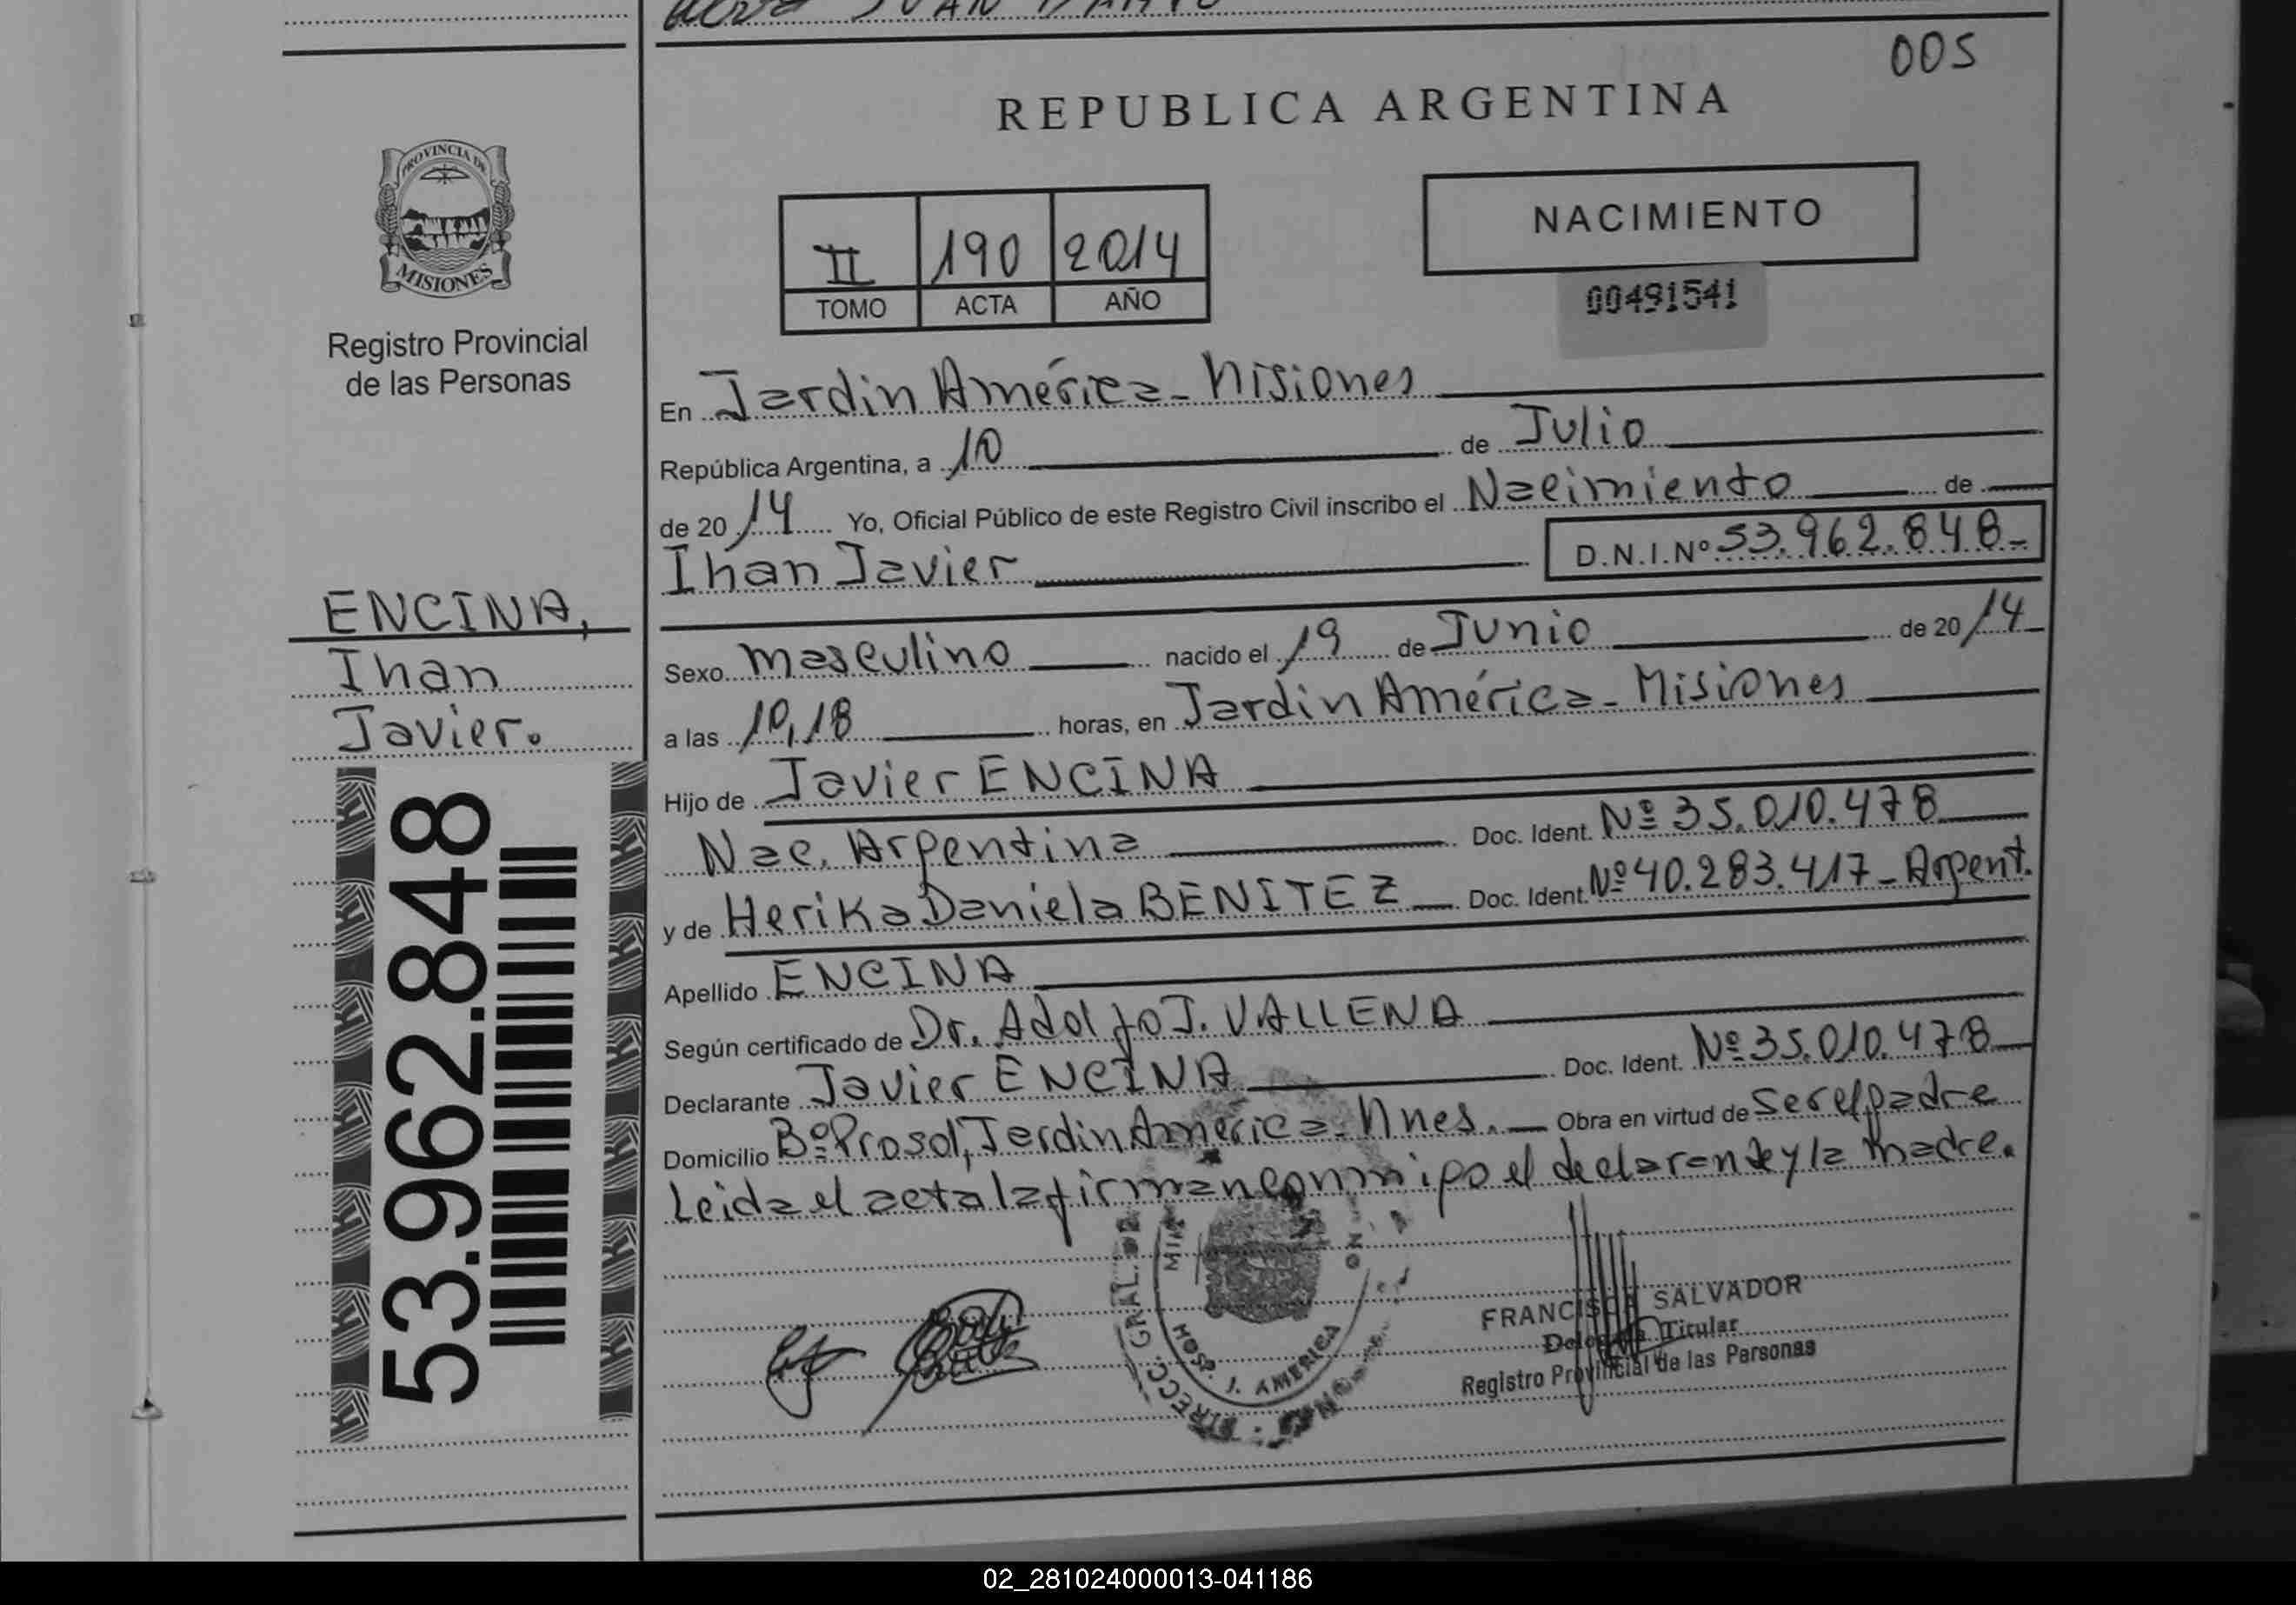 005
REPUBLICA ARGENTINA
PROVINCIA DE
MISIONES
Registro Provincial
de las Personas
II 190 2014
TOMO ACTA AÑO
NACIMIENTO
00491541
En Jardin América - Misiones
República Argentina, a 10 de Julio
de 20 14 Yo, Oficial Público de este Registro Civil inscribo el Nacimiento de
Ihan Javier D.N.I.Nº 53.962.848-
ENCINA,
Ihan
Javier.
53.962.848
Sexo masculino nacido el 19 de Junio de 20 14
a las 10,18 horas, en Jardin América - Misiones
Hijo de Javier ENCINA
Nac. Argentina Doc. Ident. Nº 35.010.478
y de Herika Daniela BENITEZ Doc. Ident. Nº 40.283.417 - Argent.
Apellido ENCINA
Según certificado de Dr. Adolfo J. VALLENA
Declarante Javier ENCINA Doc. Ident. Nº 35.010.478
Domicilio Bº Prosol, Jardin América - Mnes. Obra en virtud de ser el padre
Leida el acta la firman conmigo el declarante y la madre.
DIRECC. GRAL. DE
HOSP. J. AMERICA
FRANCISCA SALVADOR
Delegada Titular
Registro Provincial de las Personas
02_281024000013-041186